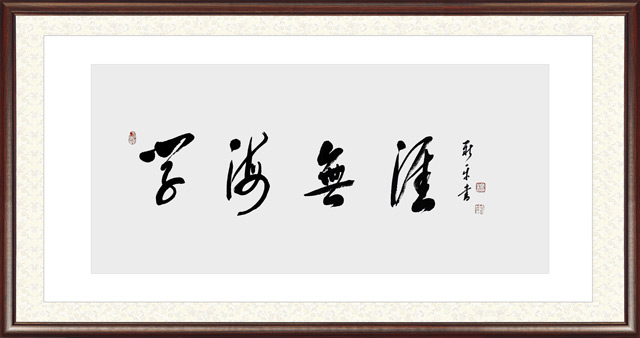 学海無涯